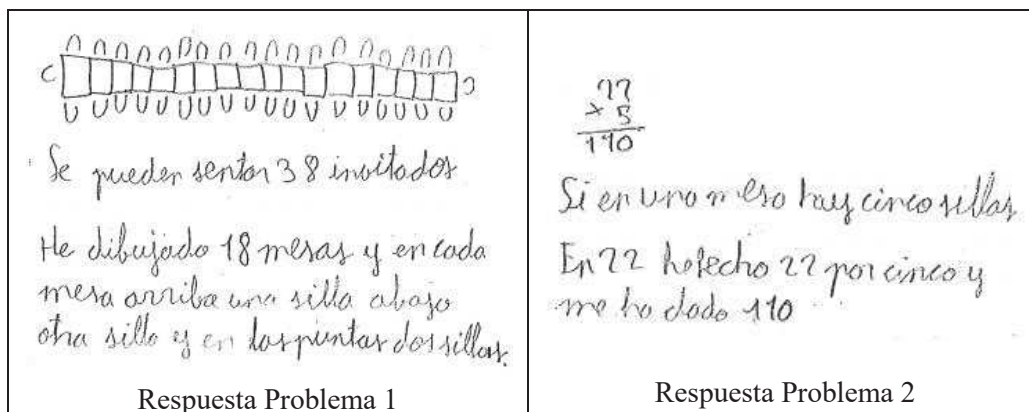 Se pueden sentar 38 invitados
He dibujado 18 mesas y en cada
mesa arriba una silla abajo
otra silla y en las puntas dos sillas.
Respuesta Problema 1
22
x 5
110
Si en una mesa hay cinco sillas
En 22 he hecho 22 por cinco y
me ha dado 110
Respuesta Problema 2